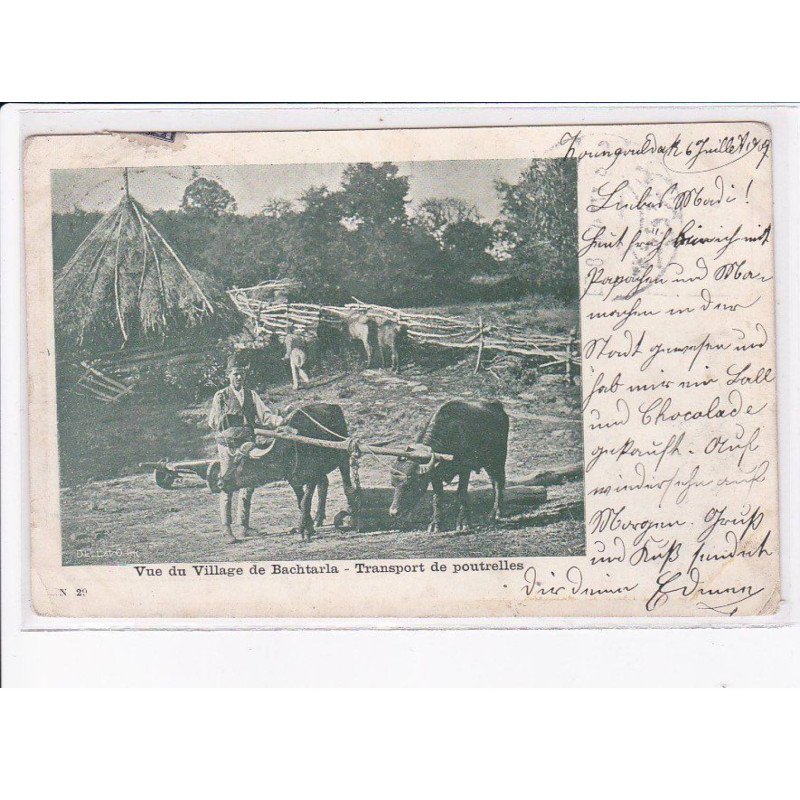 Zoungouldak 6 Juillet 09
Liebes Madi!
Heut früh bin ich mit
Papachen und Ma-
machen in der
Stadt gewesen und
hab mir ein Ball
und Chocolade
gekauft. Auf
wiedersehn auf
Morgen. Gruß
und Kuß sendet
dir deine
Vue du Village de Bachtarla - Transport de poutrelles
N 29